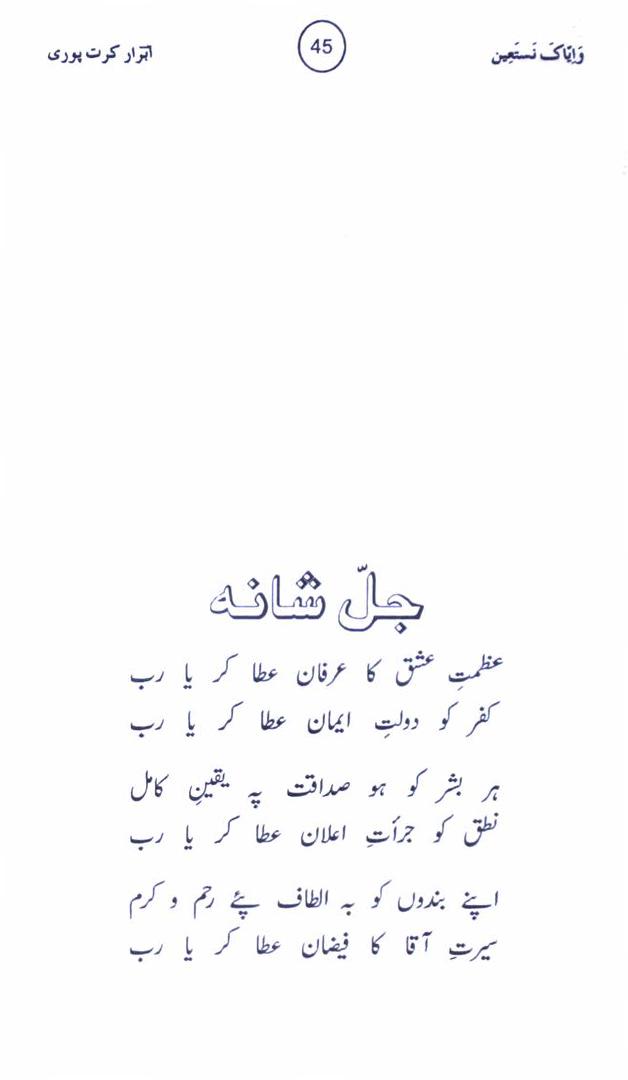 وَاِیّاکَ نَستَعِین 45 ابرار کرت پوری
جلّ شانہ
عظمتِ عشق کا عرفان عطا کر یا رب
کفر کو دولتِ ایمان عطا کر یا رب
ہر بشر کو ہو صداقت پہ یقینِ کامل
نطق کو جرأتِ اعلان عطا کر یا رب
اپنے بندوں کو بہ الطاف پئے رحم و کرم
سیرتِ آقا کا فیضان عطا کر یا رب